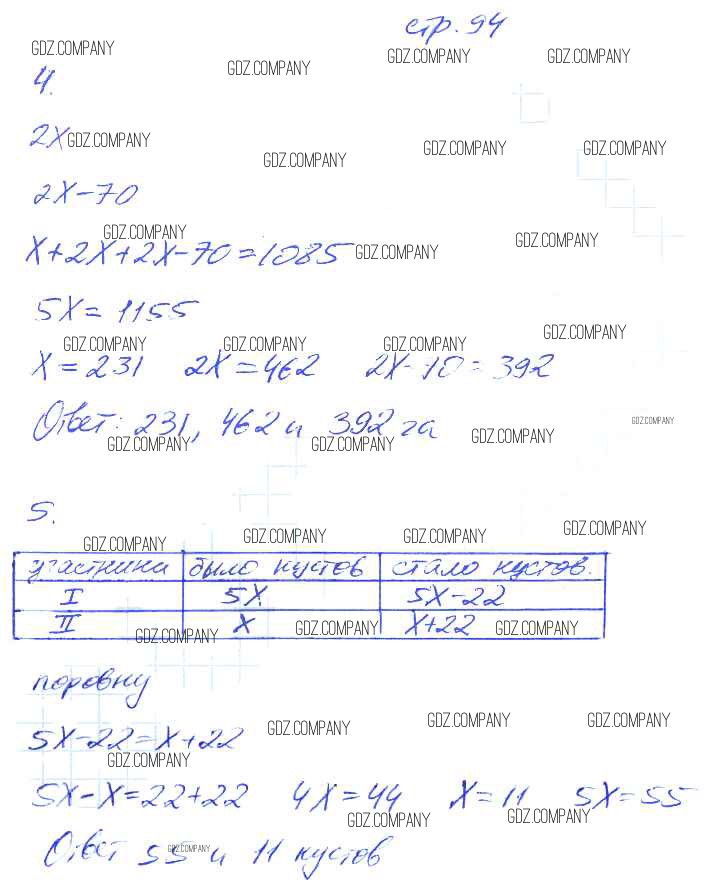 стр. 94
GDZ.COMPANY GDZ.COMPANY GDZ.COMPANY GDZ.COMPANY
4.
2x GDZ.COMPANY GDZ.COMPANY GDZ.COMPANY GDZ.COMPANY
2x-70
GDZ.COMPANY GDZ.COMPANY
x+2x+2x-70=1085 GDZ.COMPANY
5x=1155
GDZ.COMPANY GDZ.COMPANY GDZ.COMPANY GDZ.COMPANY
x=231 2x=462 2x-70=392
Ответ: 231, 462 и 392 га
GDZ.COMPANY GDZ.COMPANY GDZ.COMPANY GDZ.COMPANY
5.
GDZ.COMPANY GDZ.COMPANY GDZ.COMPANY GDZ.COMPANY
участники было кустов стало кустов.
I 5x 5x-22
II x x+22
GDZ.COMPANY GDZ.COMPANY GDZ.COMPANY
поровну
GDZ.COMPANY GDZ.COMPANY GDZ.COMPANY
5x-22=x+22
GDZ.COMPANY
5x-x=22+22 4x=44 x=11 5x=55
GDZ.COMPANY GDZ.COMPANY
Ответ 55 и 11 кустов
GDZ.COMPANY